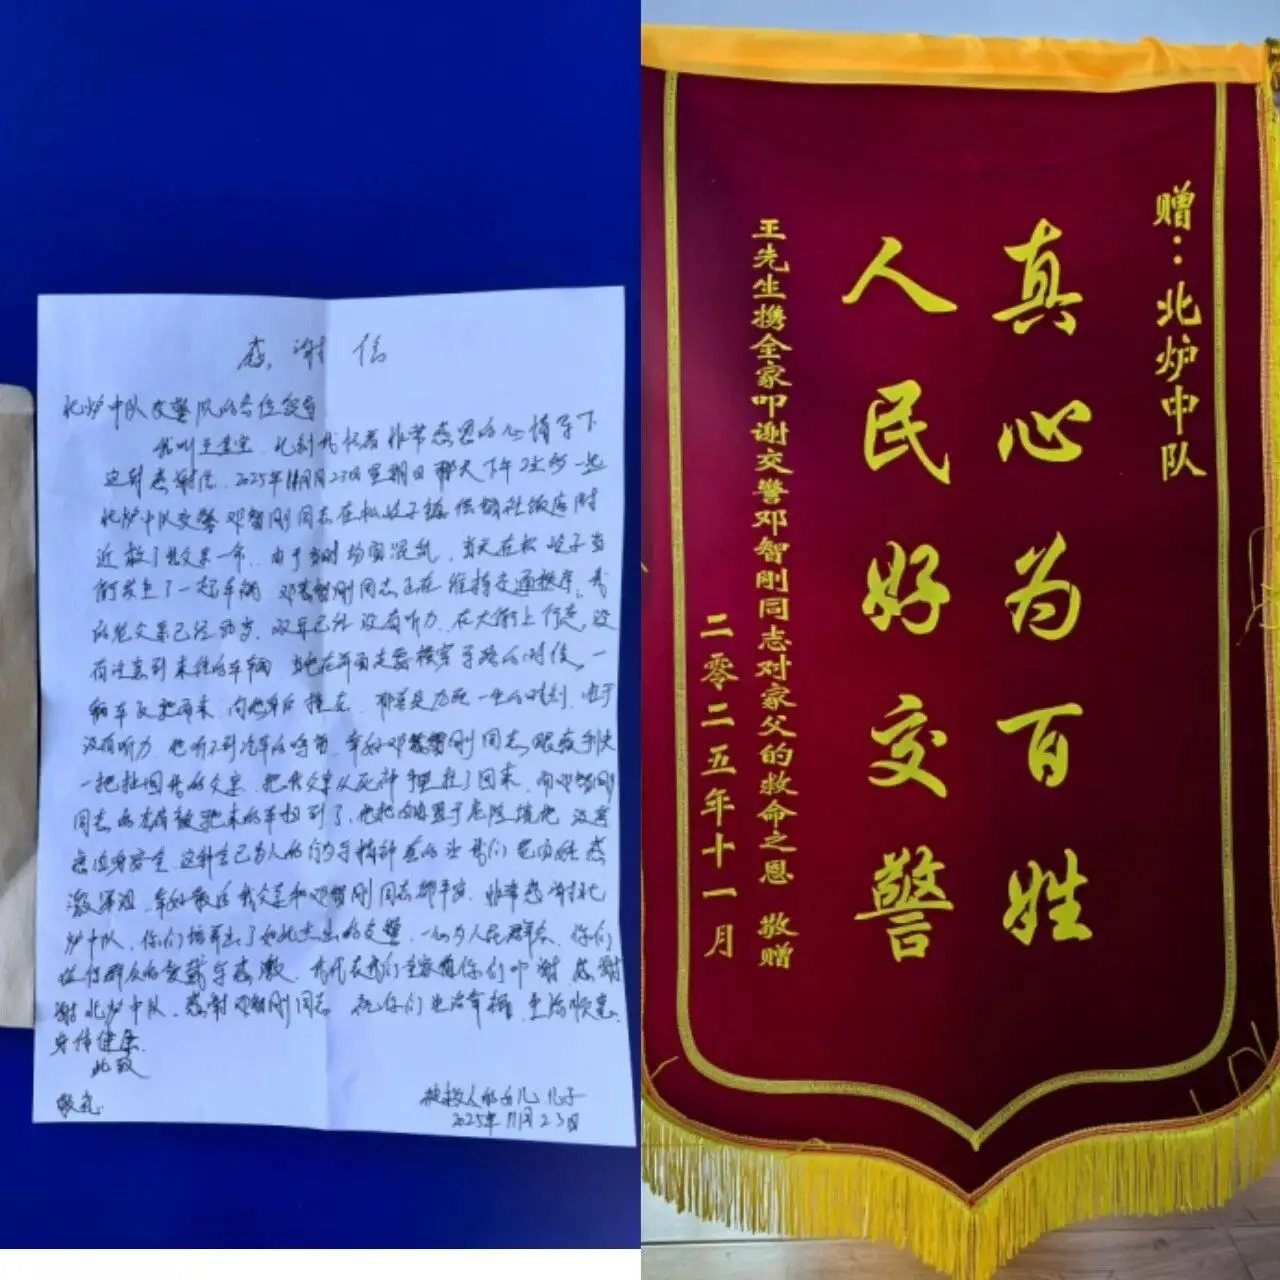 感谢信
北炉中队交警队的各位领导
我叫王 此刻我怀着非常感恩的心情写下
这封感谢信。2025年11月23日星期日 那天下午2点35一些
北炉中队交警邓智刚同志在松岐子镇供销社饭店附
近救了我父亲一命。由于当时场面混乱,当天在松岐子当
街发生了一起车辆 邓智刚同志正在维持交通秩序。我
的老父亲已经 岁,双耳已经没有听力,在大街上行走,没
有注意到来往的车辆,当他在前面走要横穿马路的时候,一
辆车飞驰而来,向他身后撞去,那真是九死一生的时刻,由于
没有听力,他听不到汽车的鸣笛,幸好邓智刚同志眼疾手快
一把拉回我的父亲,把我父亲从死神手里拉了回来,而邓智刚
同志 被驶来的车 到了,他把自己置于危险境地,没考
虑自身安全,这种舍己为人的行为与精神真的让我们老百姓感
激涕泪,幸好最后我父亲和邓智刚同志都平安。非常感谢北
炉中队,你们培养出了如此杰出的交警,一心为人民群众,你们
值得群众的爱戴与感激,我代表我们全家给你们叩谢,感谢
谢北炉中队,感谢邓智刚同志 祝你们生活幸福,工作顺意,
身体健康。
此致
敬礼
被救人的女儿 儿子
2025年11月23日
赠：北炉中队
真心为百姓
人民好交警
王先生携全家叩谢交警邓智刚同志对家父的救命之恩 敬赠
二零二五年十一月